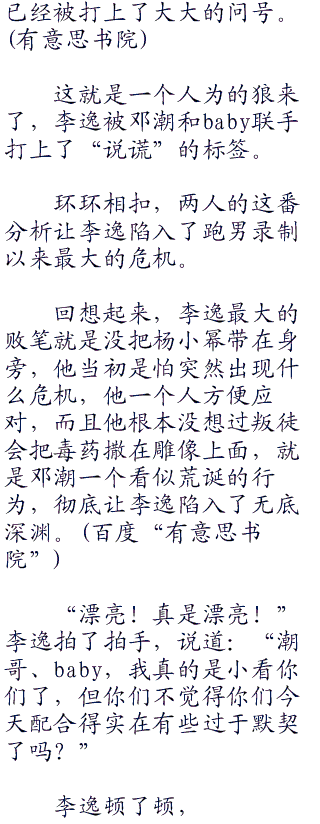 已经被打上了大大的问号。
(有意思书院)
这就是一个人为的狼来
了，李逸被邓潮和baby联手
打上了“说谎”的标签。
环环相扣，两人的这番
分析让李逸陷入了跑男录制
以来最大的危机。
回想起来，李逸最大的
败笔就是没把杨小幂带在身
旁，他当初是怕突然出现什
么危机，他一个人方便应
对，而且他根本没想过叛徒
会把毒药撒在雕像上面，就
是邓潮一个看似荒诞的行
为，彻底让李逸陷入了无底
深渊。(百度“有意思书
院”)
“漂亮！真是漂亮！”
李逸拍了拍手，说道：“潮
哥、baby，我真的是小看你
们了，但你们不觉得你们今
天配合得实在有些过于默契
了吗？”
李逸顿了顿，